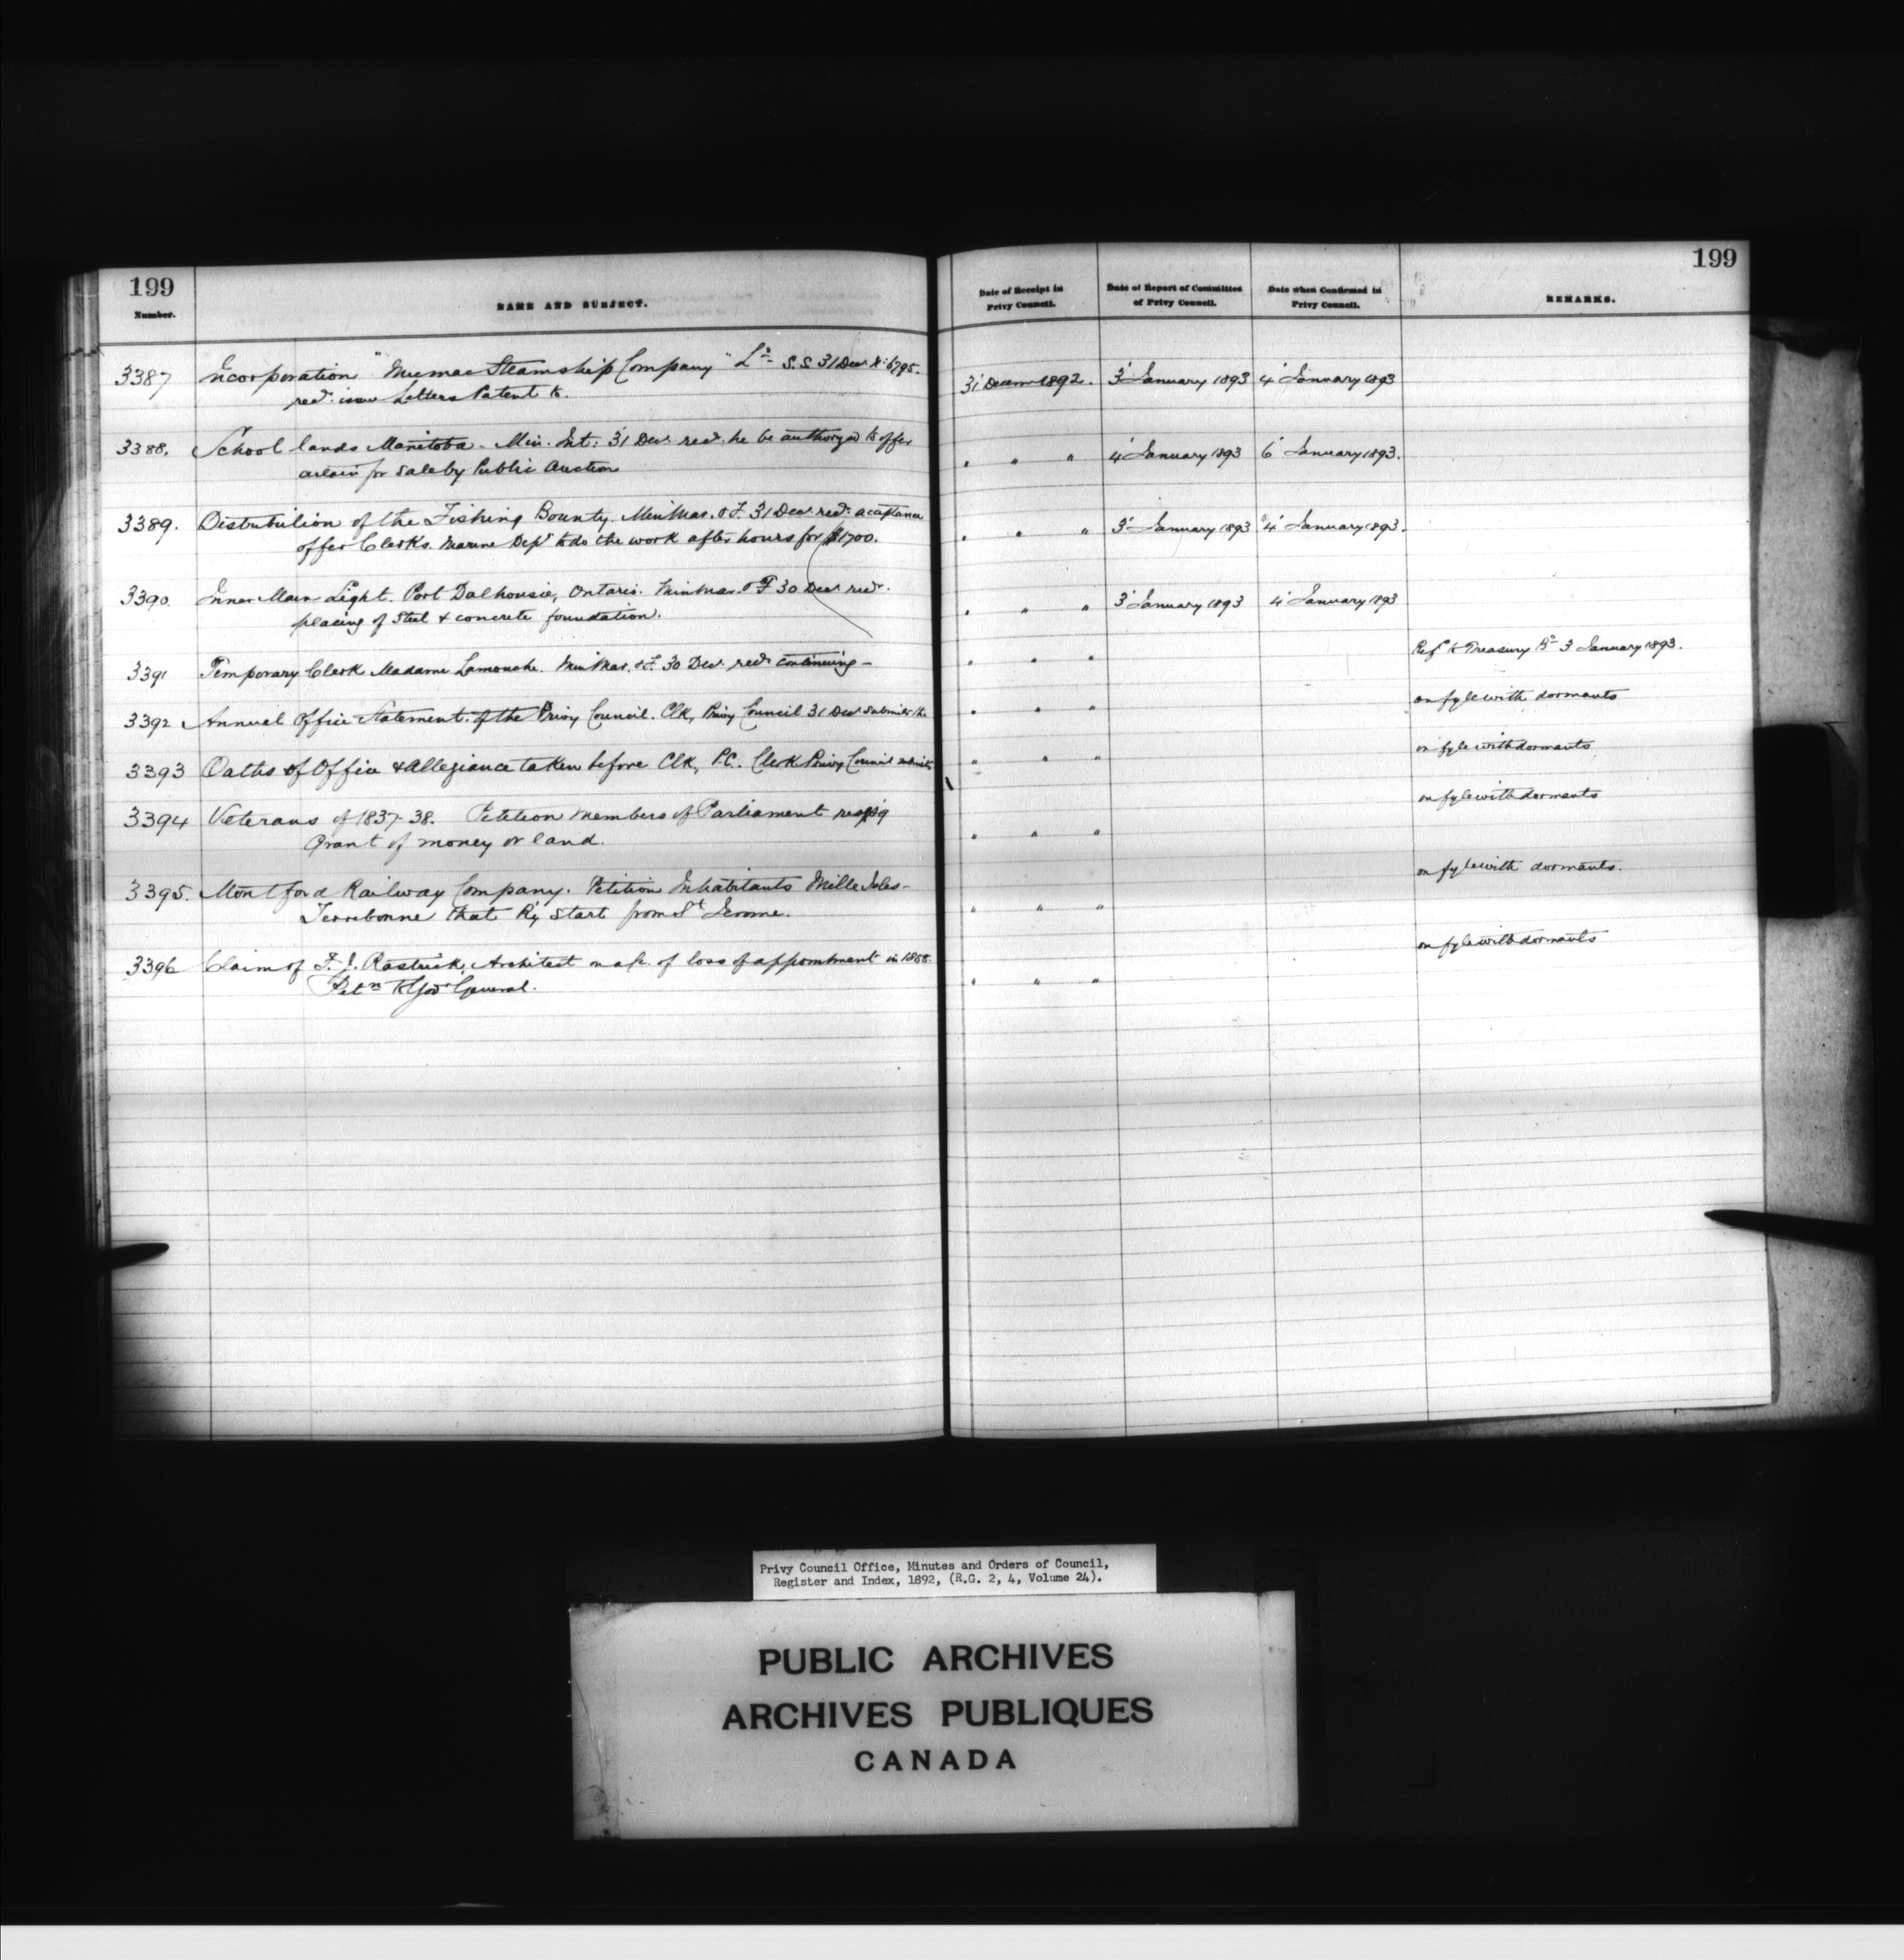 199
Number.
NAME AND SUBJECT.
3387 Incorporation "Micmac Steamship Company" Ld S.S. 31 Decr 6795.
recd. issue Letters Patent to.
3388. School lands Manitoba - Min. Int. 31 Decr recd. he be authorized to offer
certain for sale by Public Auction
3389. Distribution of the Fishing Bounty. Min Mar. & F. 31 Decr. recd. acceptance
offer Clerks Marine Dept to do the work after hours for $1700.
3390. Inner Main Light. Port Dalhousie, Ontario. Min Mar. & F 30 Decr recd.
placing of Steel & concrete foundation.
3391 Temporary Clerk Madame Lamouche. Min Mar. & F. 30 Decr. recds continuing -
3392 Annual Office Statement of the Privy Council. Clk, Privy Council 31 Decr submits the
3393 Oaths of Office & Allegiance taken before Clk, P.C. Clerk Privy Council submits
3394 Veterans of 1837-38. Petition Members of Parliament resp'g
Grant of money or land.
3395. Montford Railway Company. Petition Inhabitants Mille Isles -
Terrebonne that Ry start from St Jerome.
3396 Claim of F. J. Rastrick, Architect on a/c of loss of appointment in 1858.
Petn to Gov General.
199
Date of Receipt in
Privy Council.
Date of Report of Committee
of Privy Council.
Date when Confirmed in
Privy Council.
REMARKS.
31 Decem 1892. 3 January 1893 4 January 1893
" " " 4 January 1893 6 January 1893.
" " " 3 January 1893 4 January 1893.
" " " 3 January 1893 4 January 1893
" " " Refd to Treasury Bd 3 January 1893.
" " " on fyle with dormants
" " " on fyle with dormants
" " " on fyle with dormants
" " " on fyle with dormants.
" " " on fyle with dormants
Privy Council Office, Minutes and Orders of Council,
Register and Index, 1892, (R.G. 2, 4, Volume 24).
PUBLIC ARCHIVES
ARCHIVES PUBLIQUES
CANADA